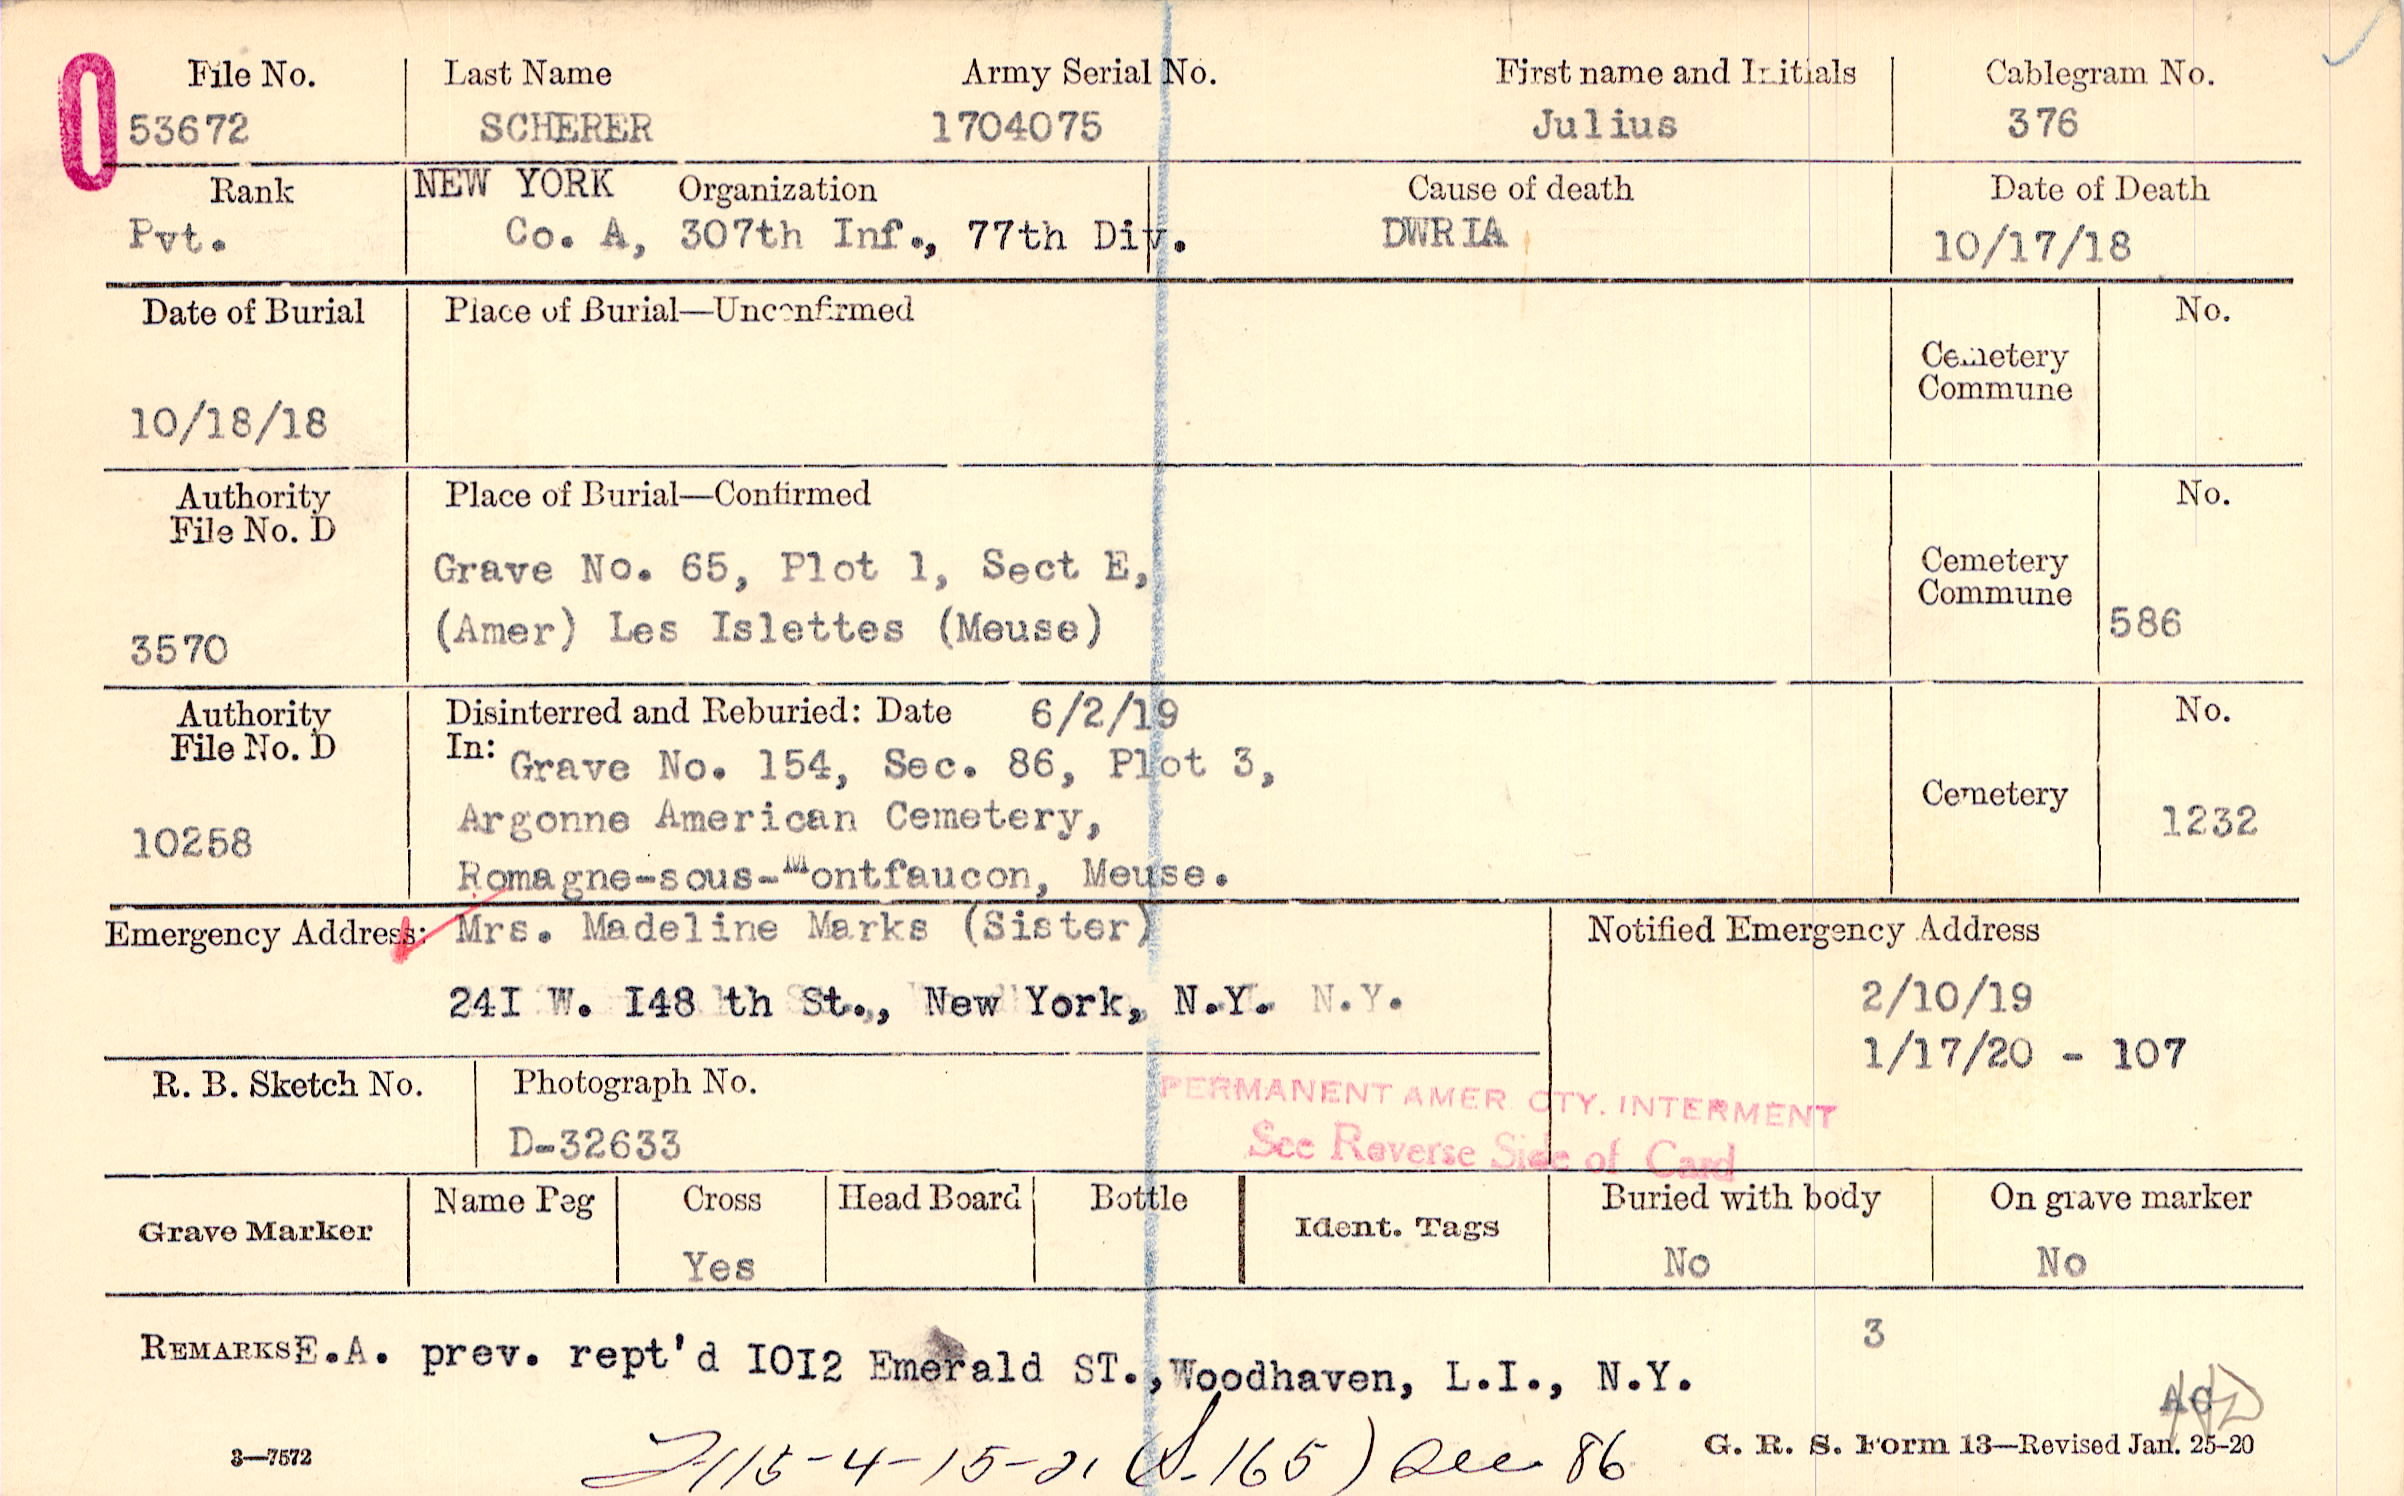 File No. Last Name Army Serial No. First name and Initials Cablegram No.
53672 SCHERER 1704075 Julius 376
Rank NEW YORK Organization Cause of death Date of Death
Pvt. Co. A, 307th Inf., 77th Div. DWRIA 10/17/18
Date of Burial Place of Burial—Unconfirmed No.
Cemetery
Commune
10/18/18
Authority Place of Burial—Confirmed No.
File No. D
Grave No. 65, Plot 1, Sect E, Cemetery
Commune
(Amer) Les Islettes (Meuse) 586
3570
Authority Disinterred and Reburied: Date 6/2/19 No.
File No. D In: Grave No. 154, Sec. 86, Plot 3,
Cemetery
Argonne American Cemetery, 1232
10258
Romagne-sous-Montfaucon, Meuse.
Emergency Address: Mrs. Madeline Marks (Sister) Notified Emergency Address
24I W. I48 th St., New York, N.Y. N.Y. 2/10/19
1/17/20 - 107
R. B. Sketch No. Photograph No.
PERMANENT AMER CTY. INTERMENT
D-32633 See Reverse Side of Card
Grave Marker Name Peg Cross Head Board Bottle Ident. Tags Buried with body On grave marker
Yes No No
3
REMARKS E.A. prev. rept'd IOI2 Emerald ST., Woodhaven, L.I., N.Y.
AG
3—7572 G. R. S. Form 13—Revised Jan. 25-20
115-4-15-21 (S-165) Sec 86